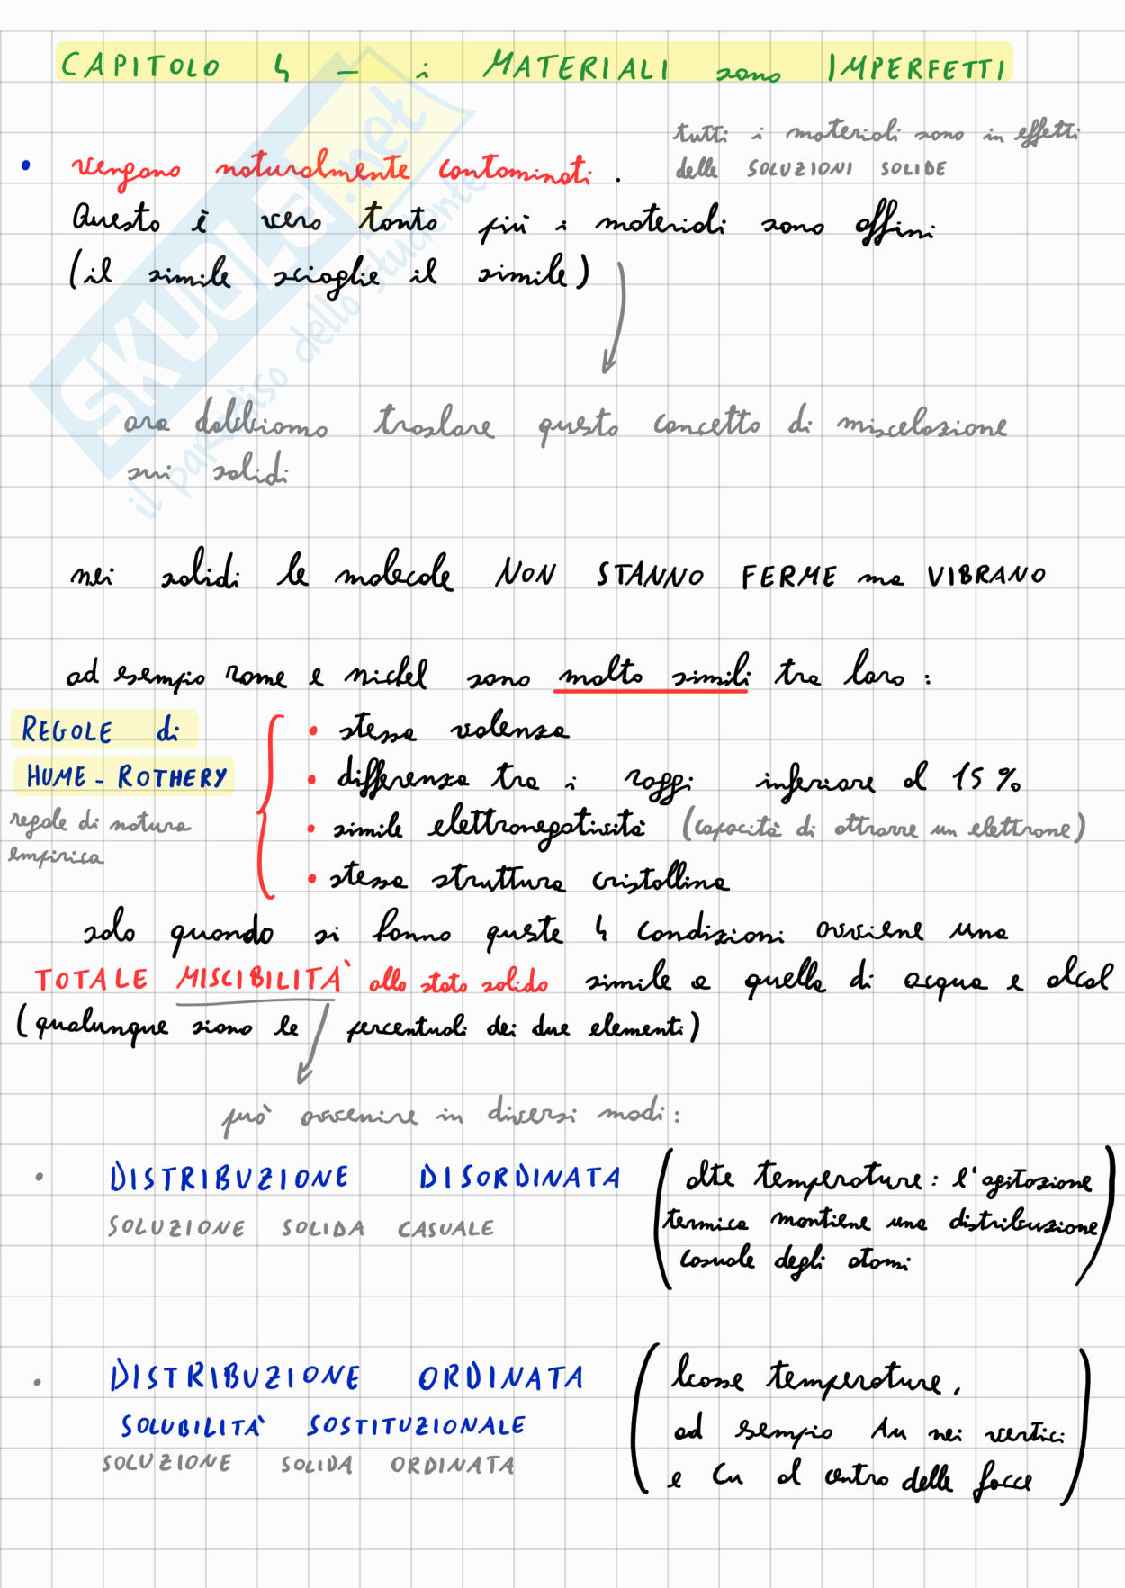 CAPITOLO 4 - i MATERIALI sono IMPERFETTI
tutti i materiali sono in effetti
delle SOLUZIONI SOLIDE
• vengono naturalmente contaminati.
Questo è vero tanto più i materiali sono affini
(il simile scioglie il simile)
ora dobbiamo traslare questo concetto di miscelazione
sui solidi
nei solidi le molecole NON STANNO FERME ma VIBRANO
ad esempio rame e nichel sono molto simili tra loro:
REGOLE di
HUME-ROTHERY
regole di natura
empirica
• stessa valenza
• differenza tra i raggi inferiore al 15%
• simile elettronegatività (capacità di attrarre un elettrone)
• stessa struttura cristallina
solo quando si fanno queste 4 condizioni avviene una
TOTALE MISCIBILITÀ allo stato solido simile a quella di acqua e alcol
(qualunque siano le percentuali dei due elementi)
può avvenire in diversi modi:
• DISTRIBUZIONE DISORDINATA
SOLUZIONE SOLIDA CASUALE
(alte temperature: l'agitazione
termica mantiene una distribuzione
casuale degli atomi)
• DISTRIBUZIONE ORDINATA
SOLUBILITÀ SOSTITUZIONALE
SOLUZIONE SOLIDA ORDINATA
(basse temperature,
ad esempio Au nei vertici
e Cu al centro delle facce)
SKUOLA.net
il paradiso dello studente